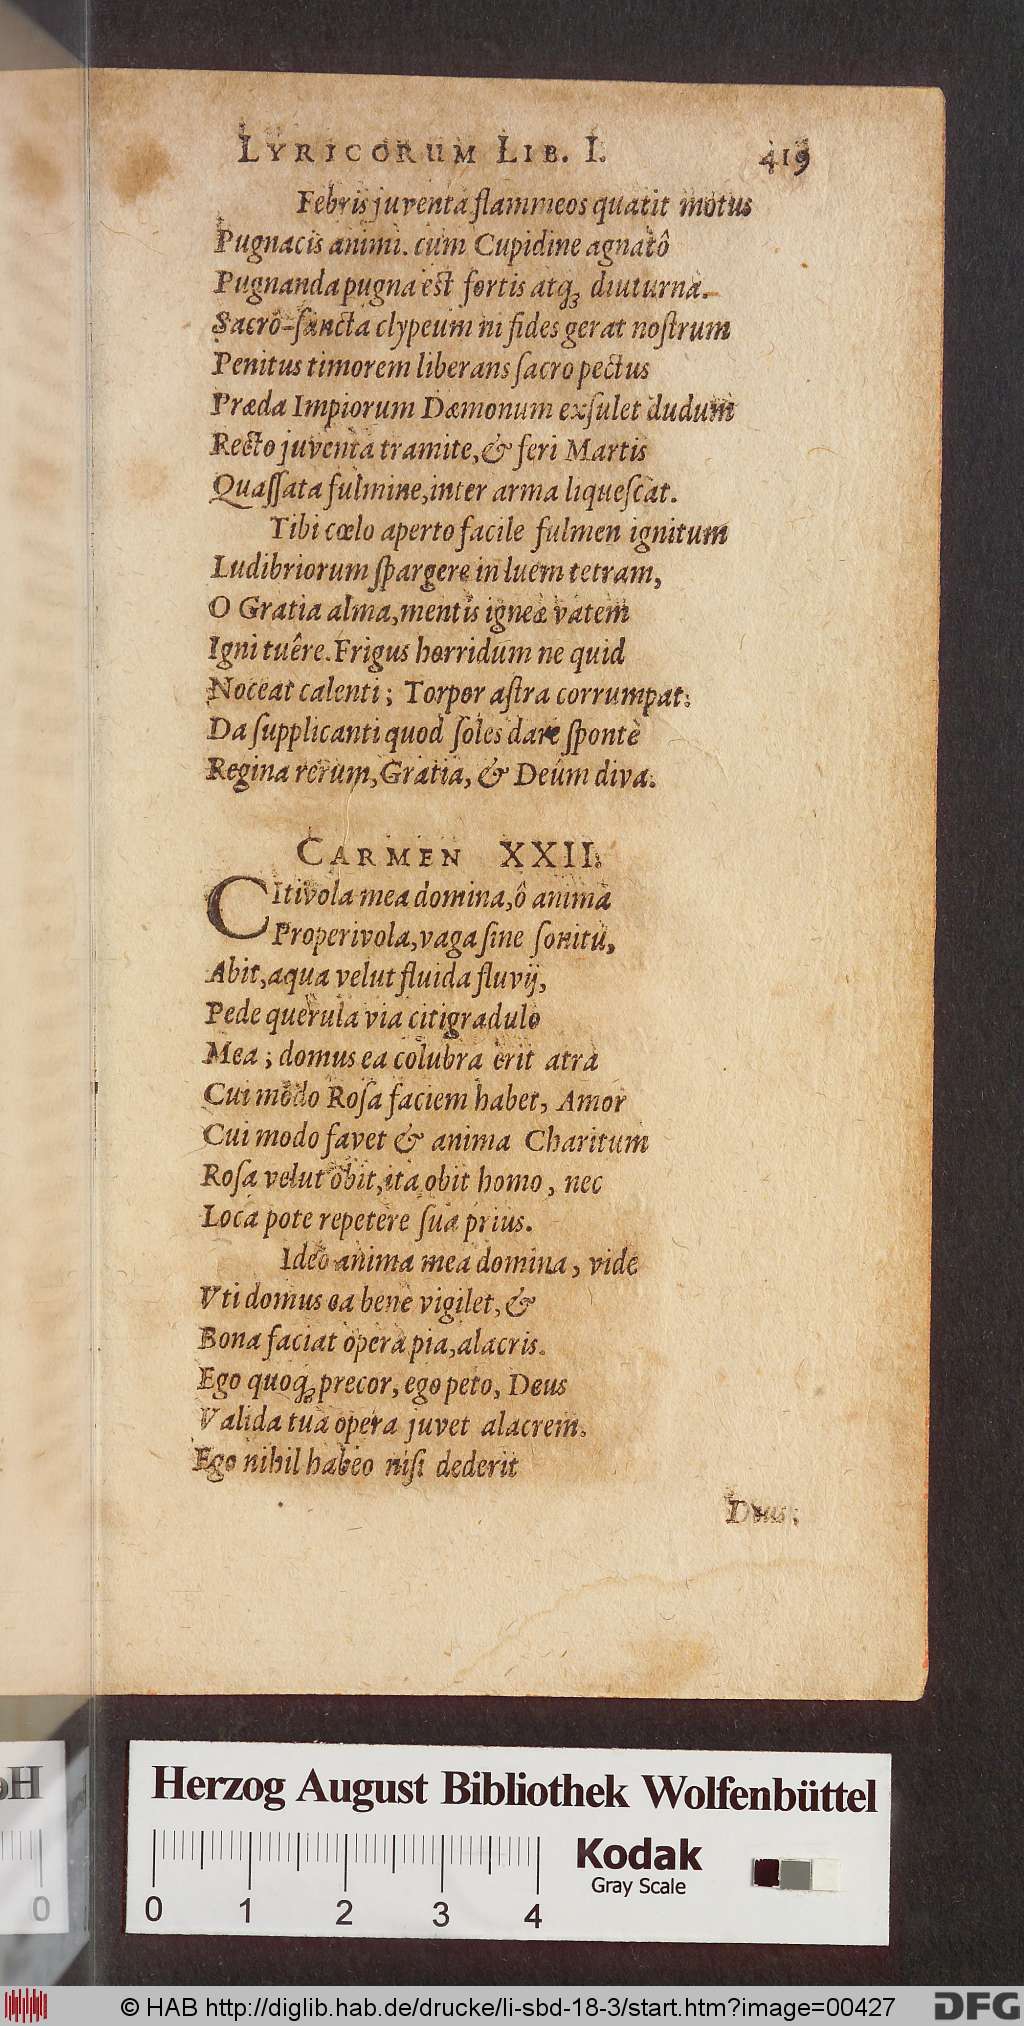 LYRICORUM LIB. I. 419
Febris juventa flammeos quatit motus
Pugnacis animi. cum Cupidine agnatô
Pugnanda pugna est fortis atq; diuturna.
Sacro-sancta clypeum ni fides gerat nostrum
Penitus timorem liberans sacro pectus
Præda Impiorum Dæmonum exsulet dudum
Recto juventa tramite, & feri Martis
Quassata fulmine, inter arma liquescat.
Tibi cœlo aperto facile fulmen ignitum
Ludibriorum spargere in luem tetram,
O Gratia alma, mentis igneæ vatem
Igni tuêre. Frigus horridum ne quid
Noceat calenti; Torpor astra corrumpat:
Da supplicanti quod soles dare sponte
Regina rerum, Gratia, & Deûm diva.
CARMEN XXII.
CItivola mea domina, ô anima
Properivola, vaga sine sonitu,
Abit, aqua velut fluida fluvij,
Pede querula via citigradulo
Mea; domus ea colubra erit atra
Cui modo Rosa faciem habet, Amor
Cui modo favet & anima Charitum
Rosa velut obit, ita obit homo, nec
Loca pote repetere sua prius.
Ideo anima mea domina, vide
Vti domus ea bene vigilet, &
Bona faciat opera pia, alacris.
Ego quoq; precor, ego peto, Deus
Valida tua opera juvet alacrem.
Ego nihil habeo nisi dederit
Deus;
Herzog August Bibliothek Wolfenbüttel
Kodak
Gray Scale
0 1 2 3 4
0
© HAB http://diglib.hab.de/drucke/li-sbd-18-3/start.htm?image=00427
DFG